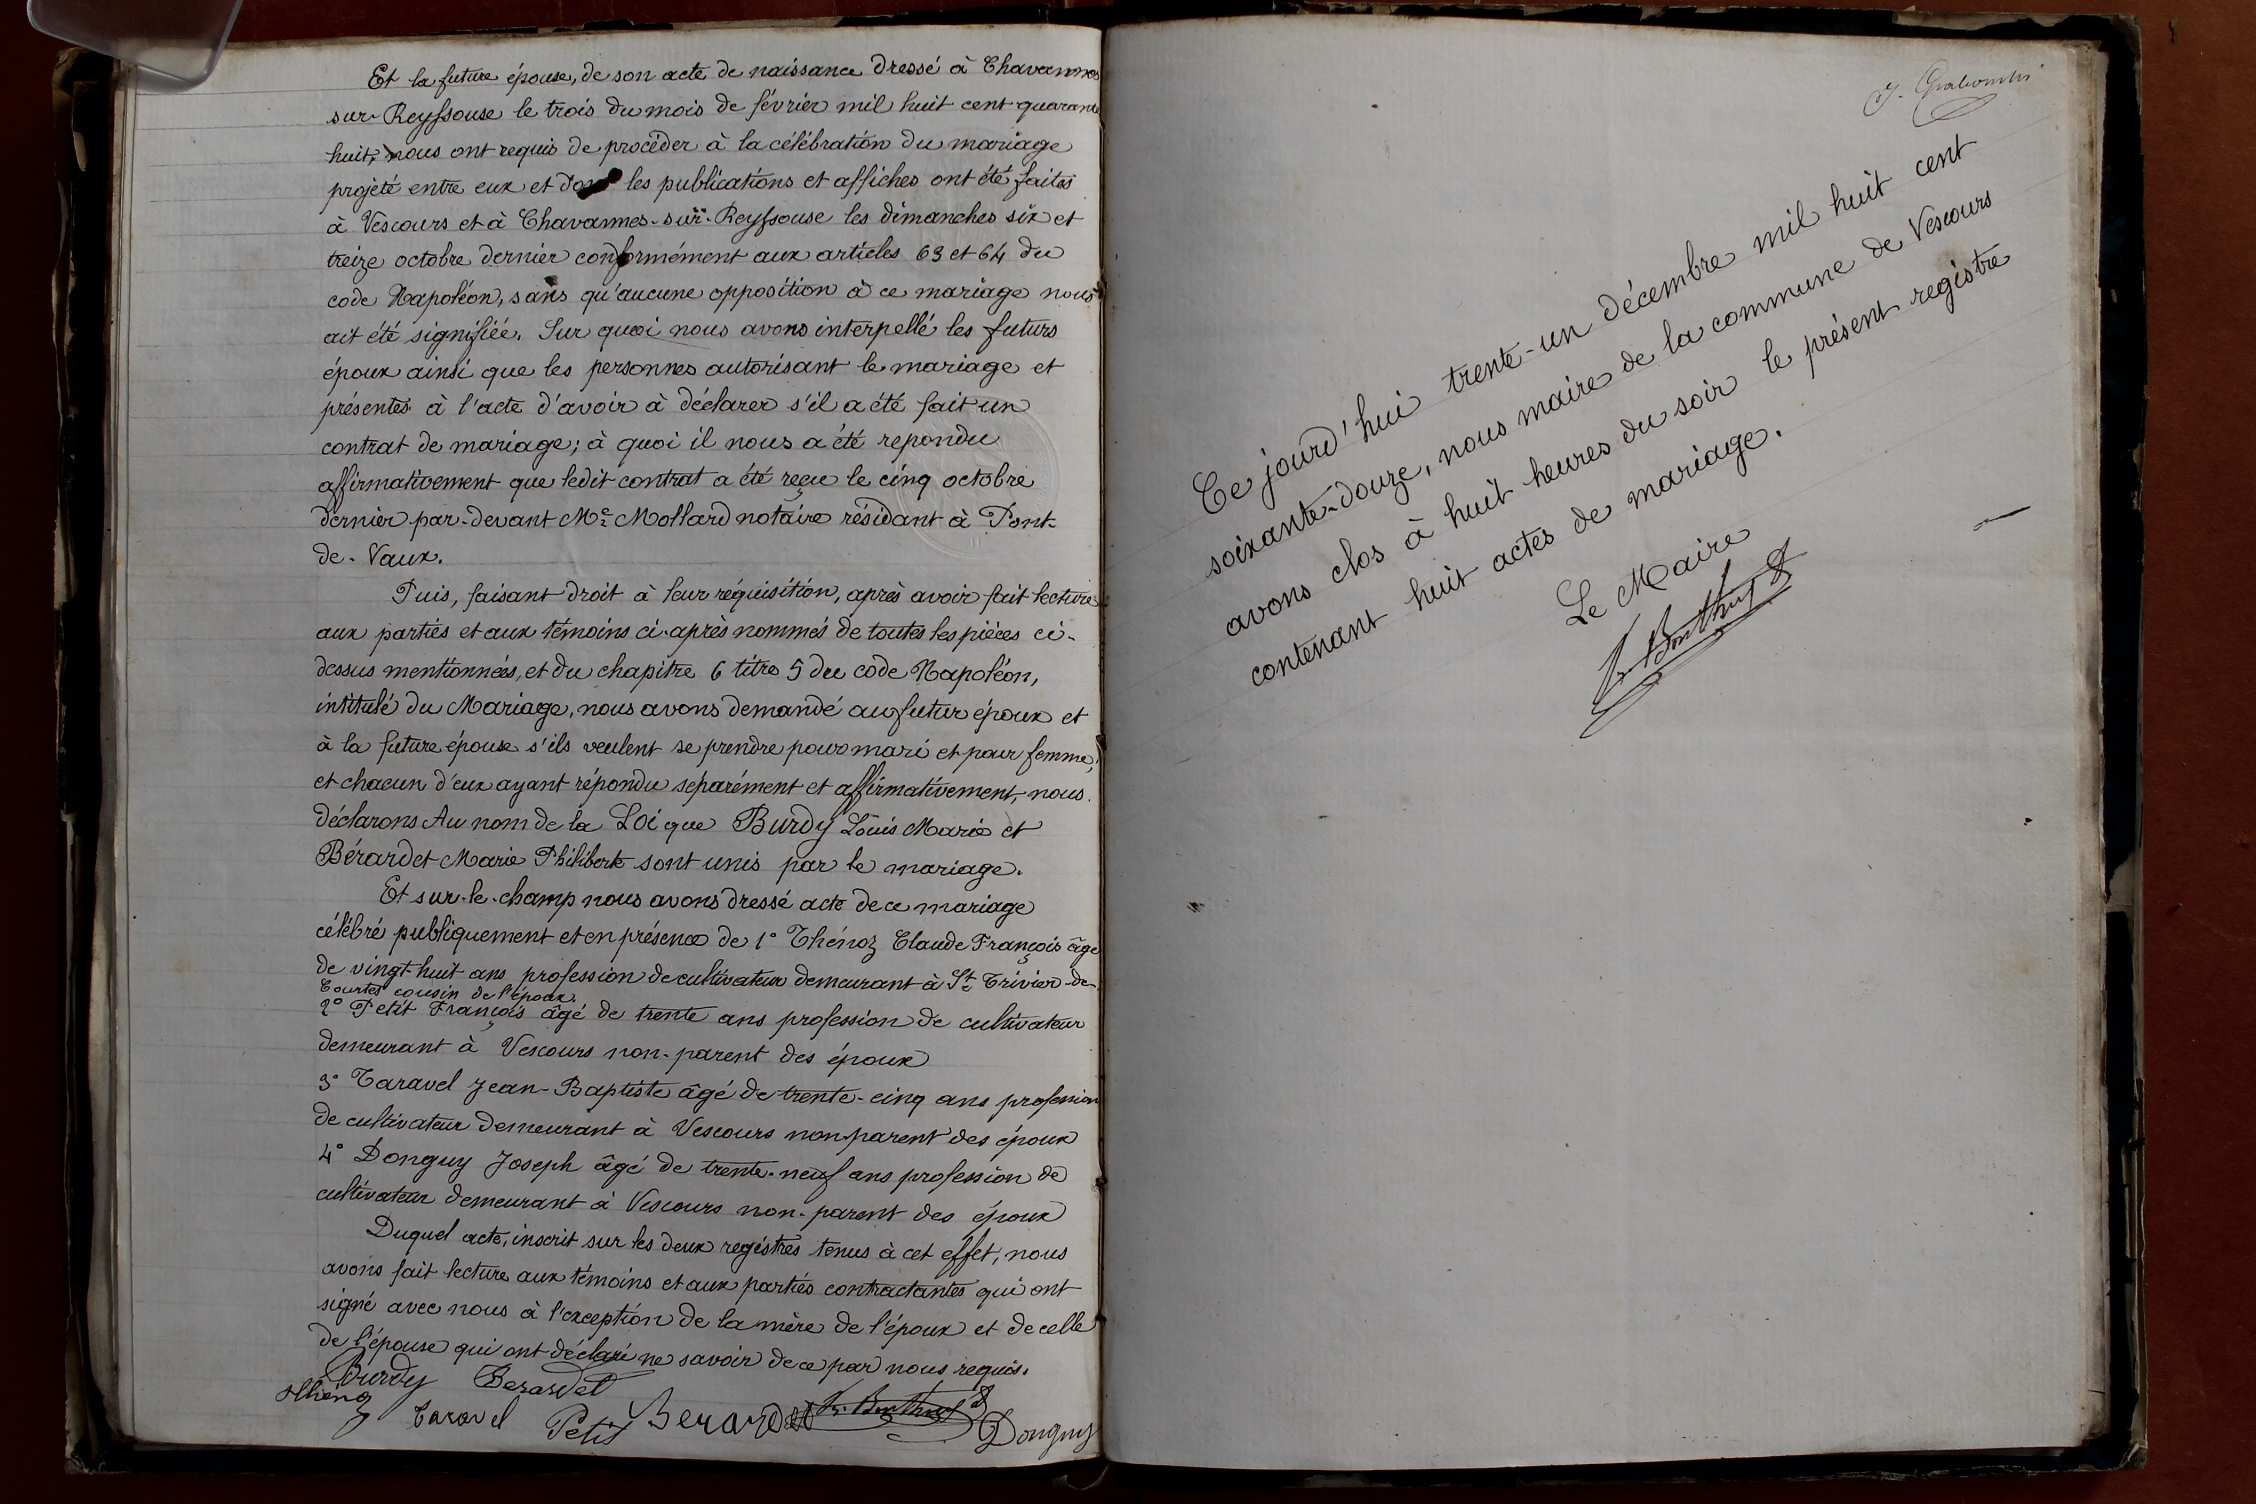 Et la future épouse, de son acte de naissance dressé à Chavannes
sur-Reyssouse le trois du mois de février mil huit cent quarante
huit, nous ont requis de procéder à la célébration du mariage
projeté entre eux et dont les publications et affiches ont été faites
à Vescours et à Chavannes-sur-Reyssouse les dimanches six et
treize octobre dernier conformément aux articles 63 et 64 du
code Napoléon, sans qu'aucune opposition à ce mariage nous
ait été signifiée. Sur quoi nous avons interpellé les futurs
époux ainsi que les personnes autorisant le mariage et
présentes à l'acte d'avoir à déclarer s'il a été fait un
contrat de mariage; à quoi il nous a été repondu
affirmativement que ledit contrat a été reçu le cinq octobre
dernier par-devant Me Mollard notaire résidant à Pont-
de-Vaux.
Puis, faisant droit à leur réquisition, après avoir fait lecture
aux parties et aux témoins ci-après nommés de toutes les pièces ci-
dessus mentionnées, et du chapitre 6 titre 5 du code Napoléon,
intitulé du Mariage, nous avons demandé au futur époux et
à la future épouse s'ils veulent se prendre pour mari et pour femme,
et chacun d'eux ayant répondu séparément et affirmativement, nous
déclarons Au nom de la Loi que Burdy Louis Marie et
Bérardet Marie Philiberte sont unis par le mariage.
Et sur-le-champ nous avons dressé acte de ce mariage
célébré publiquement et en présence de 1° Thénoz Claude François âgé
de vingt-huit ans profession de cultivateur demeurant à St Trivier-de-
Courtes cousin de l'époux
2° Petit François âgé de trente ans profession de cultivateur
demeurant à Vescours non-parent des époux
3° Taravel Jean-Baptiste âgé de trente-cinq ans profession
de cultivateur demeurant à Vescours non parent des époux
4° Donguy Joseph âgé de trente-neuf ans profession de
cultivateur demeurant à Vescours non-parent des époux
Duquel acte, inscrit sur les deux registres tenus à cet effet, nous
avons fait lecture aux témoins et aux parties contractantes qui ont
signé avec nous à l'exception de la mère de l'époux et de celle
de l'épouse qui ont déclaré ne savoir de ce par nous requis.
Burdy Berardet
Thénoz
Taravel Petit Berardet Donguy
Ce jourd'hui trente-un décembre mil huit cent
soixante-douze, nous maire de la commune de Vescours
avons clos à huit heures du soir le présent registre
contenant huit actes de mariage.
Le Maire